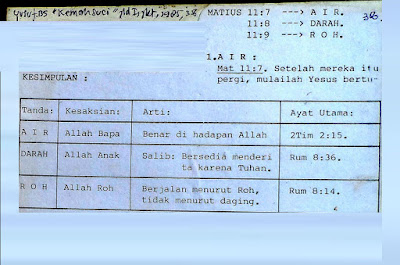 "Kemah Suci" jld I, jkt, 1985, 38/
MATIUS 11:7 ---> A I R.
38.
11:8 ---> DARAH.
11:9 ---> R O H.
1. A I R :
Mat 11:7. Setelah mereka itu
KESIMPULAN : pergi, mulailah Yesus bertu-
Tanda: Kesaksian: Arti: Ayat Utama:
A I R Allah Bapa Benar di hadapan Allah 2Tim 2:15.
DARAH Allah Anak Salib: Bersedia menderi Rum 8:36.
ta karena Tuhan.
R O H Allah Roh Berjalan menurut Roh, Rum 8:14.
tidak menurut daging.